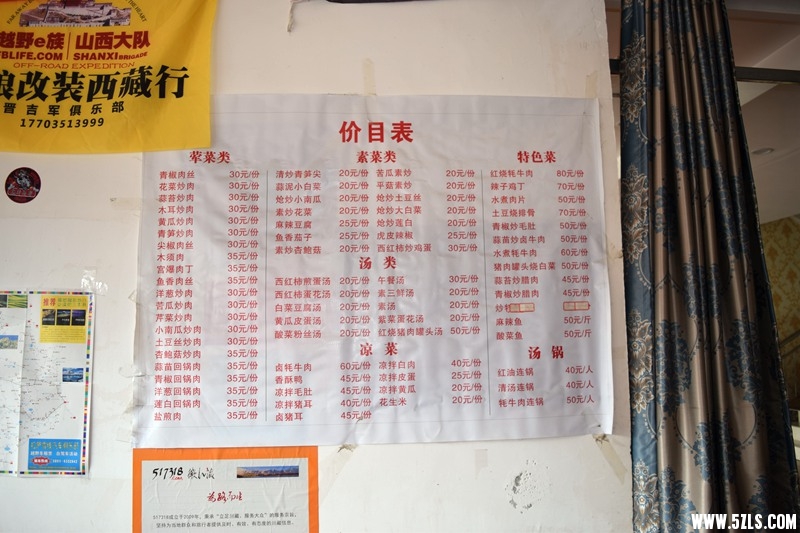 越野e族 山西大队
FBLIFE.COM SHANXI BRIGADE
OFF-ROAD EXPEDITION
改装西藏行
晋吉军俱乐部
17703513999
价目表
荤菜类
青椒肉丝 30元/份
花菜炒肉 30元/份
蒜苔炒肉 30元/份
木耳炒肉 30元/份
黄瓜炒肉 30元/份
青笋炒肉 30元/份
尖椒肉丝 30元/份
木须肉 35元/份
宫爆肉丁 35元/份
鱼香肉丝 35元/份
洋葱炒肉 30元/份
苦瓜炒肉 30元/份
芹菜炒肉 30元/份
小南瓜炒肉 30元/份
土豆丝炒肉 30元/份
杏鲍菇炒肉 35元/份
蒜苗回锅肉 35元/份
青椒回锅肉 35元/份
洋葱回锅肉 35元/份
莲白回锅肉 35元/份
盐煎肉 35元/份
素菜类
清炒青笋尖 20元/份
蒜泥小白菜 20元/份
炝炒小南瓜 20元/份
素炒花菜 20元/份
麻辣豆腐 25元/份
鱼香茄子 25元/份
素炒杏鲍菇 25元/份
苦瓜素炒 20元/份
平菇素炒 20元/份
炝炒土豆丝 20元/份
炝炒大白菜 20元/份
炝炒莲白 20元/份
虎皮辣椒 25元/份
西红柿炒鸡蛋 30元/份
汤类
西红柿煎蛋汤 20元/份
西红柿蛋花汤 20元/份
白菜豆腐汤 20元/份
黄瓜皮蛋汤 20元/份
酸菜粉丝汤 20元/份
午餐汤 30元/份
素三鲜汤 20元/份
素汤 20元/份
紫菜蛋花汤 20元/份
红烧猪肉罐头汤 50元/份
凉菜
卤牦牛肉 60元/份
香酥鸭 45元/份
凉拌毛肚 45元/份
凉拌猪耳 40元/份
卤猪耳 45元/份
凉拌白肉 40元/份
凉拌皮蛋 25元/份
凉拌黄瓜 20元/份
花生米 20元/份
特色菜
红烧牦牛肉 80元/份
辣子鸡丁 70元/份
水煮肉片 50元/份
土豆烧排骨 70元/份
青椒炒毛肚 50元/份
蒜苗炒卤牛肉 50元/份
水煮牦牛肉 60元/份
猪肉罐头烧白菜 50元/份
蒜苔炒腊肉 45元/份
青椒炒腊肉 45元/份
炒
麻辣鱼 50元/斤
酸菜鱼 50元/斤
汤锅
红油连锅 40元/人
清汤连锅 40元/人
牦牛肉连锅 50元/人
推荐
517318
.com
WWW.5ZLS.COM